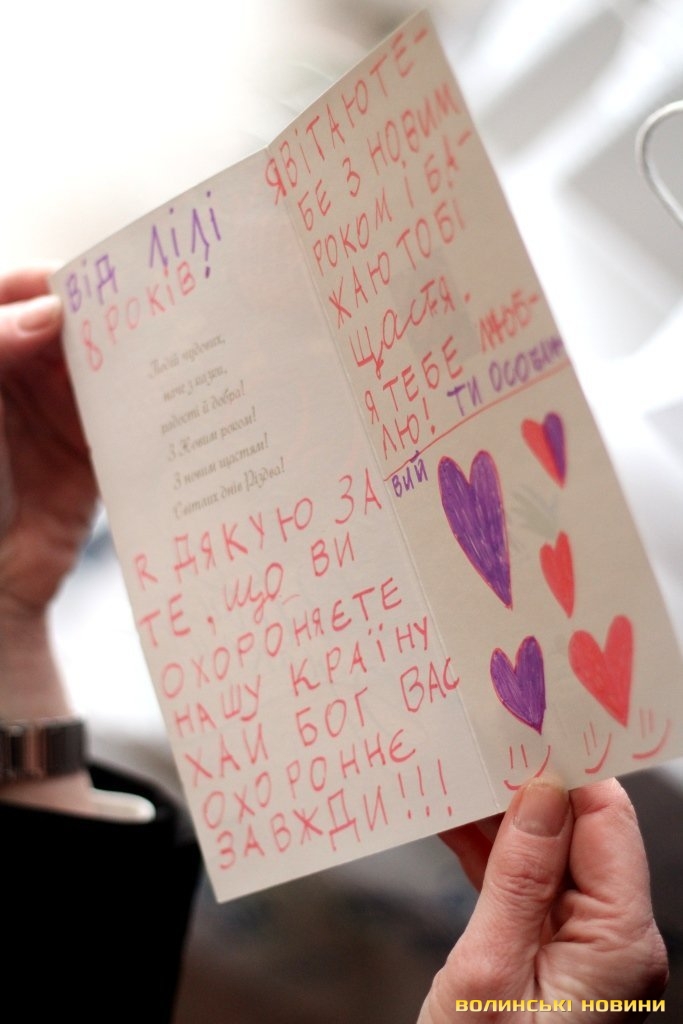 ВІД ЛІЛІ
8 РОКІВ!
Подій чудових,
наче з казки,
радості й добра!
З Новим роком!
З новим щастям!
Світлих днів Різдва!
Я ДЯКУЮ ЗА
ТЕ, ЩО ВИ
ОХОРОНЯЄТЕ
НАШУ КРАЇНУ
ХАЙ БОГ ВАС
ОХОРОННЄ
ЗАВЖДИ!!!
ЯВІТАЮТЕ-
БЕ З НОВИМ
РОКОМ І БА-
ЖАЮ ТОБІ
ЩАСТЯ.
Я ТЕБЕ ЛЮБ-
ЛЮ! ТИ ОСОБЛИ
ВИЙ
ВОЛИНСЬКІ НОВИНИ